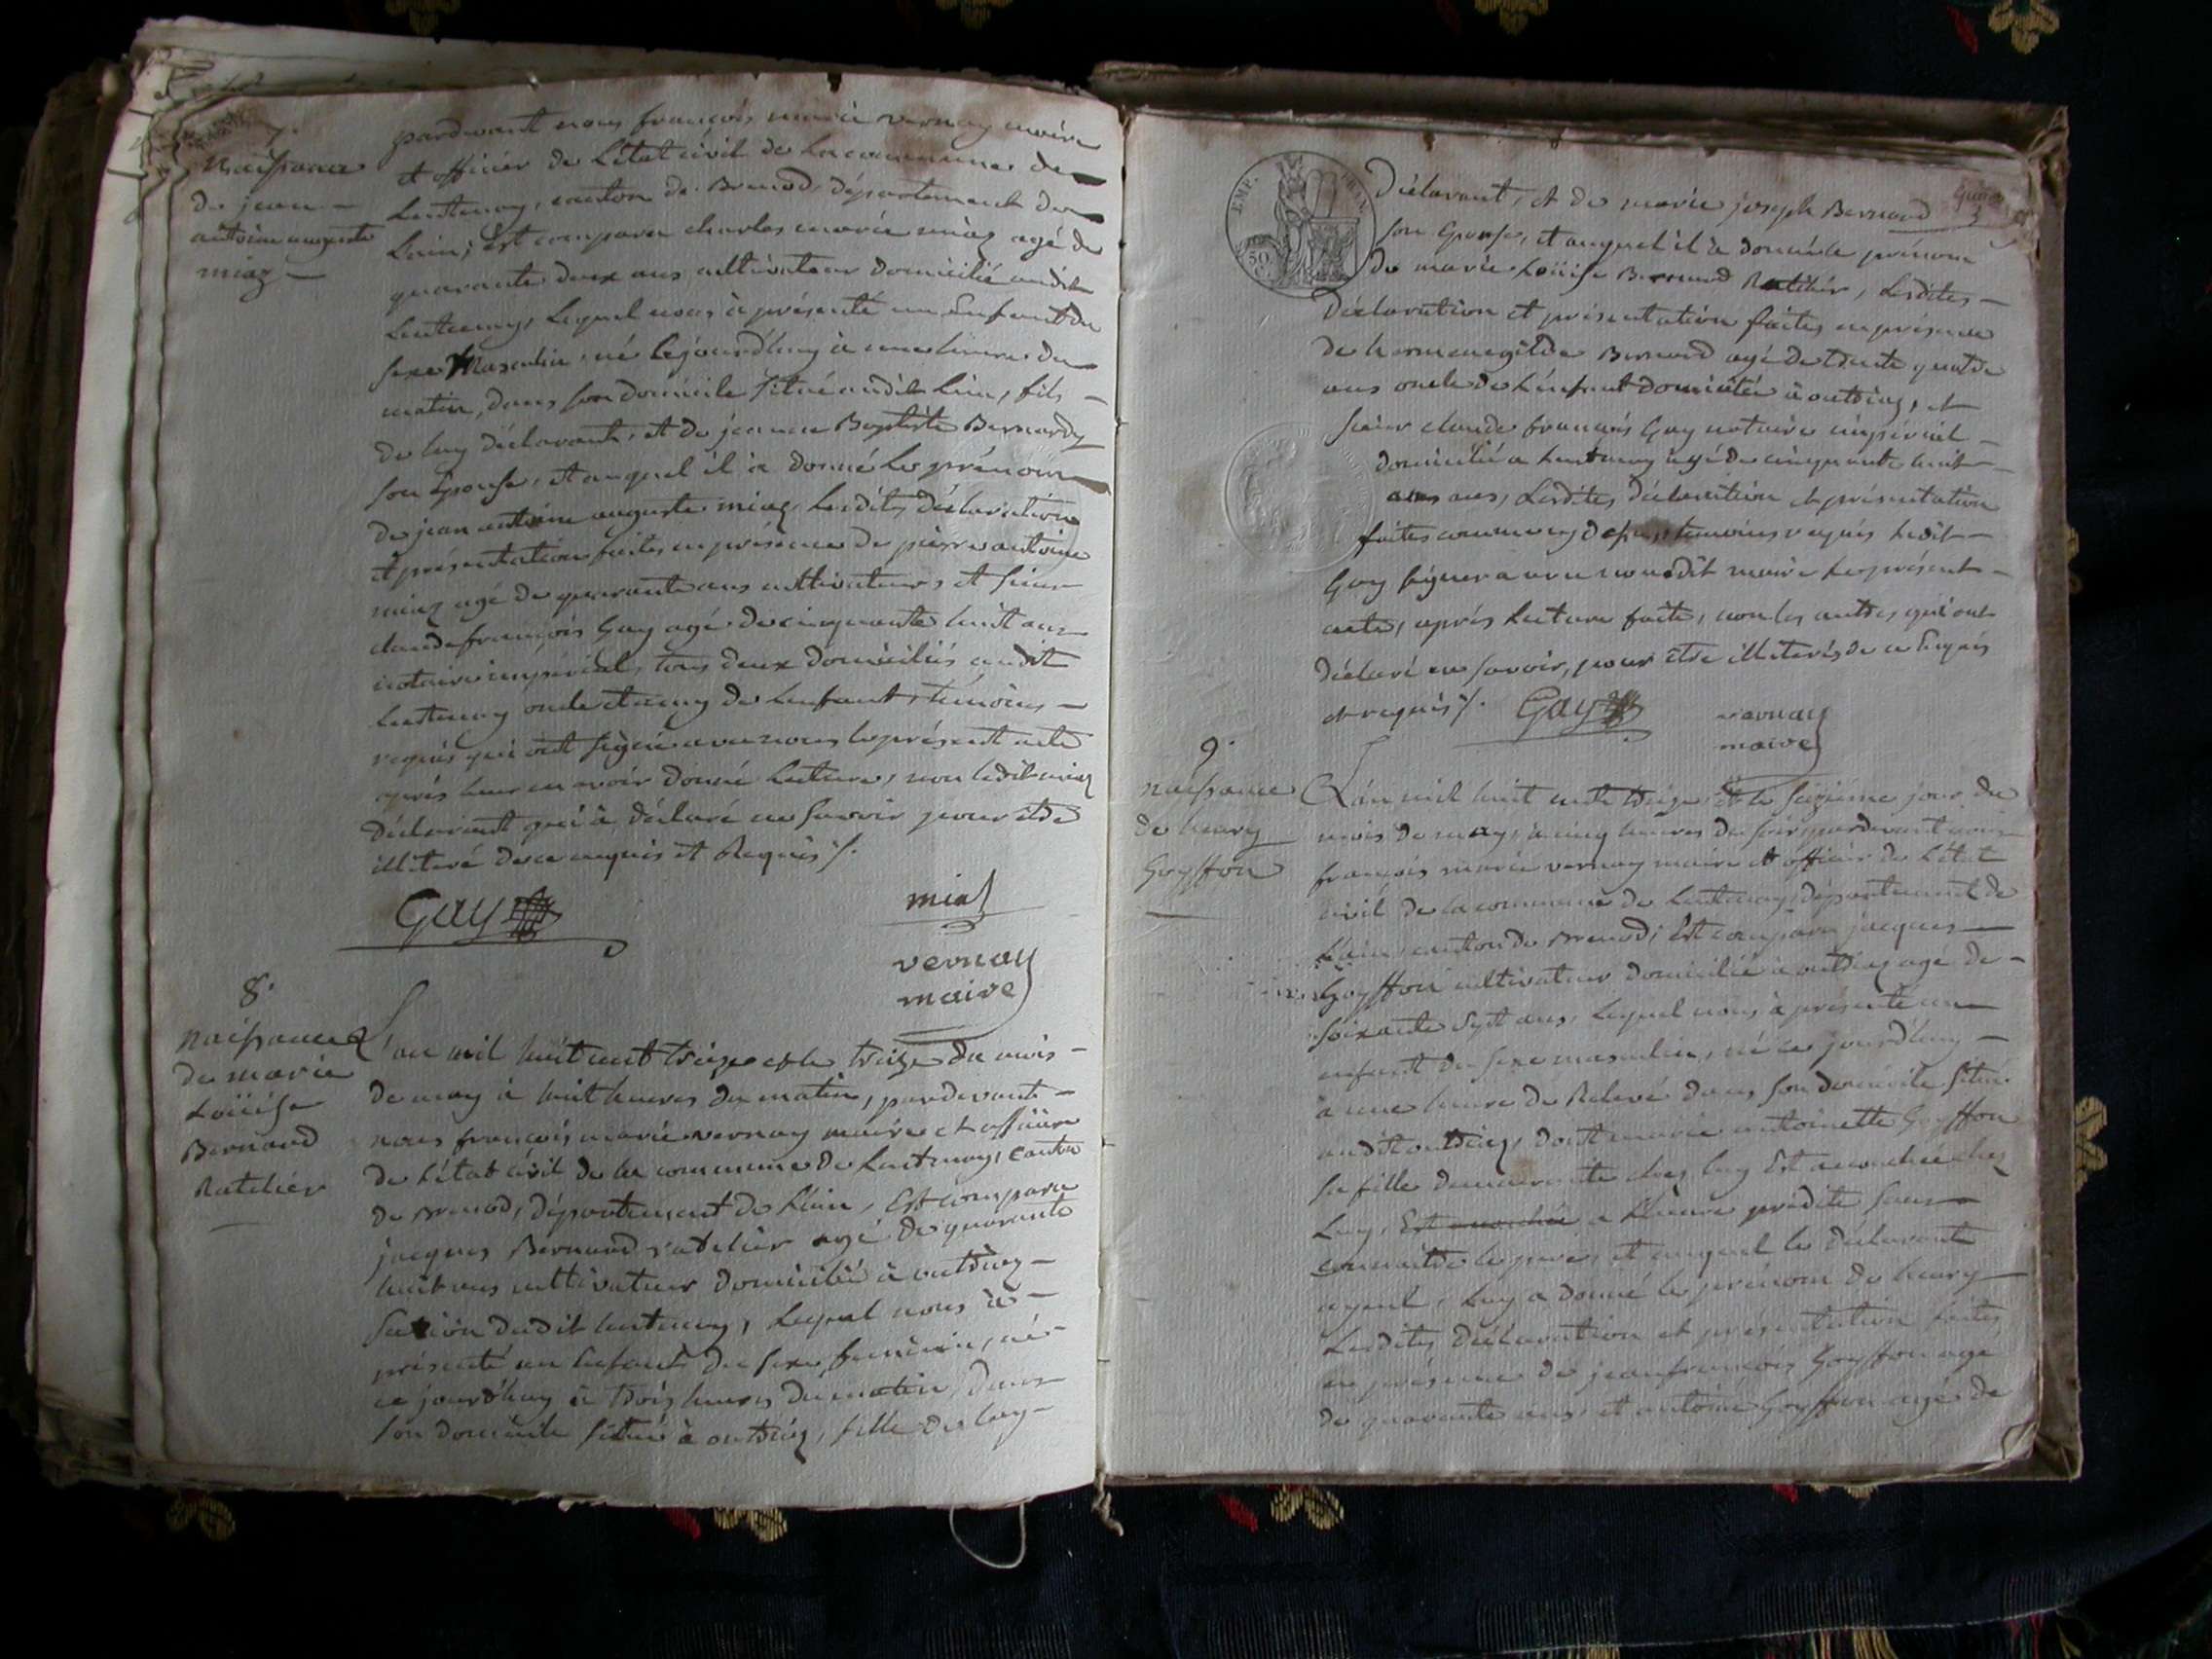 7.
naissance
de jean
antoine auguste
miaz
pardevant nous françois marie vernay maire
et officier de L'état civil de la commune de
Lantenay, canton de Brenod, département de
L'ain, est comparu charles marie miaz agé de
quarante deux ans cultivateur domicilié audit
Lantenay, Lequel nous à présenté un Enfant du
sexe Masculin, né cejourd'huy à une heure du
matin, dans son domicile situé audit Lieu, fils
de luy déclarant, et de jeanne Baptiste Bernardy
son Epouse, et auquel il à donné les prénoms
de jean antoine auguste miaz, Lesdites déclaration
et présentation faites en présence de pierre antoine
miaz agé de quarante ans cultivateur, et sieur
claude françois Gay agé de cinquante huit ans
notaire impérial, tous deux domiciliés audit
Lantenay oncle et de Lenfant, témoins
requis qui ont signé avec nous le présent acte
après leur en avoir donné Lecture, non ledit miaz
déclarant qui à déclaré ne savoir pour etre
illiteré de ce enquis et Requis ./.
Gay
miaz
vernay
maire
8.
naissance
de marie
Loüise
Bernard
Ratelier
L'an mil huit cent treize et le treize du mois
de may à huit heures du matin, pardevant
nous françois marie vernay maire et officier
de L'état civil de la commune de Lantenay, canton
de Brenod, département de L'ain, Est comparu
jacques Bernard ratelier agé de quarante
huit ans cultivateur domicilié à outriaz
section dudit lantenay, Lequel nous à
présenté un Enfant du sexe féminin, né
ce jourd'huy à trois heures du matin, dans
son domicile situé à outriaz, fille de luy
EMP. FRAN.
50
C.
déclarant, et de marie joseph Bernard
son Epouse, et auquel il à donné le prénom
de marie Loüise Bernard Ratelier, Lesdites
déclaration et présentation faites en présence
de hermenegilde Bernard agé de trente quatre
ans oncle de L'enfant domicilié à outriaz, et
sieur claude françois Gay notaire impérial
domicilié a Lantenay agé de cinquante huit
ans, Lesdites déclaration et présentation
faites comme témoins requis Ledit
Gay signera avec nousdit maire Le présent
acte, après Lecture faite, non les autres qui ont
déclaré ne savoir, pour etre illiterés de ce Enquis
et requis ./. Gay
vernay
maire
9.
naissance
de henry
Goyffon
L'an mil huit cent treize, et le seizieme jour du
mois de may, à cinq heures du soir pardevant nous
françois marie vernay maire et officier de L'état
civil de la commune de Lantenay, département de
L'ain canton de Brenod, Est comparu jacques
Goyffon cultivateur domicilié à outriaz agé de
soixante sept ans, Lequel nous à présenté un
enfant du sexe masculin, né ce jourd'huy
à une heure de Relevé dans son domicile situé
audit outriaz, dont marie antoinette Goyffon
sa fille demeurante chez luy Est accouchée chez
Luy, Est accouchée a L'heure predite sans
connaitre le pere, et auquel le déclarant
ayeul, Luy a donné le prénom de henry
Lesdites déclaration et présentation faites
en présence de jean françois Goyffon agé
de quarante ans, et antoine Goyffon agé de